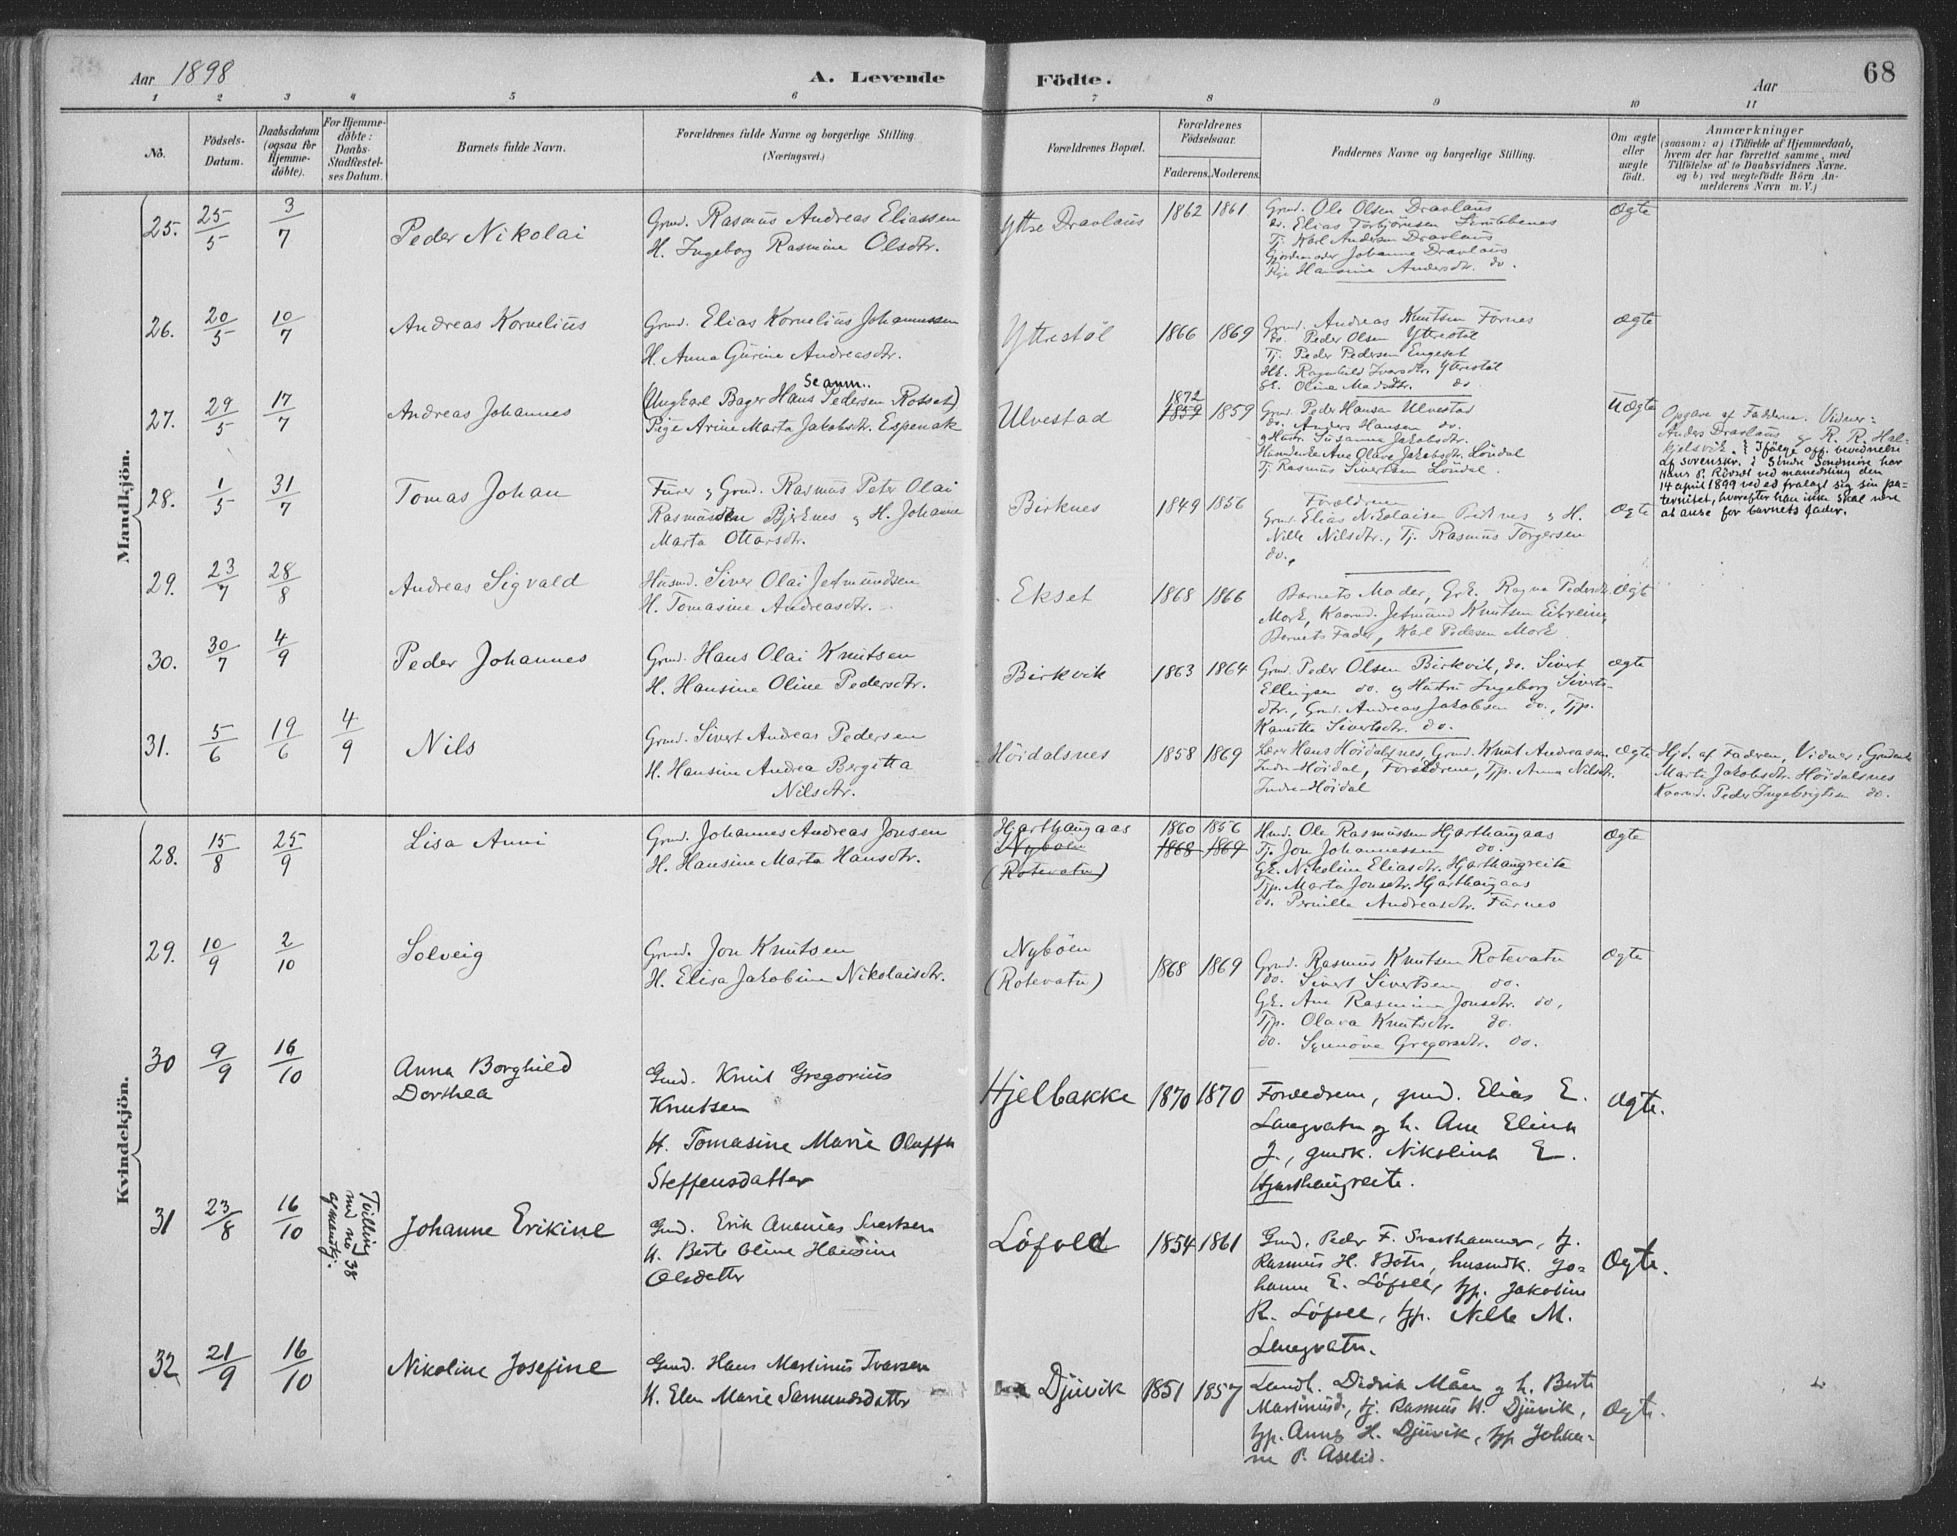 Aar 1898
A. Levende Födte.
Aar
68
1 2 3 4 5 6 7 8 9 10 11
No.
Födsels-Datum.
Daabsdatum (ogsaa for Hjemme-döbte).
For Hjemme-döbte: Daabs-Stadfæstel-ses Datum.
Barnets fulde Navn.
Forældrenes fulde Navne og borgerlige Stilling.
(Næringsvei.)
Forældrenes Bopæl.
Forældrenes Födselsaar.
Faderens. Moderens.
Faddernes Navne og borgerlige Stilling.
Om ægte eller uægte födt.
Anmærkninger
(saasom: a) i Tilfælde af Hjemmedaab,
hvem der har forrettet samme, med
Tilföielse af to Daabsvidners Navne.
og b) ved uægtefödte Börn An-
melderens Navn m. V.)
Mandkjön.
25. 25/5 3/7 Peder Nikolai
Grmd. Rasmus Andreas Eliassen
H. Ingeborg Rasmine Olsdtr.
Yttre Dravlaus 1862 1861
Grmd. Ole Olsen Dravlaus
do. Elias Torbjörnsen
Tj. Karl Andersen Dravlaus
Gjordemoder Johanne Dravlaus
Pige Hansine Andersdtr. do.
Ægte
26. 20/5 10/7 Andreas Kornelius
Grmd. Elias Kornelius Johannessen
H. Anna Gurine Andreasdtr.
Yttrestöl 1866 1869
Grmd. Andreas Knutsen Furnes
do. Peder Olsen Yttrestöl
Tj. Peder Pedersen Engeset
Ragnhild Iversdtr. Yttrestöl
Oline Madsdtr. do
Ægte
27. 29/5 17/7 Andreas Johannes
Seanm..
(Ungkarl Bager Hans Pedersen Rotset)
Pige Arine Marta Jakobsdtr. Espenak
Ulvestad 1872 1859 1859
Grmd. Peder Hansen Ulvestad
do. Anders Hansen do.
og Hustr. Susanna Jakobsdtr.
Husmderke Ane Olave Jakobsdtr. Löndal
Tj. Rasmus Sivertsen Löndal.
Uægte
Opgave af Fadderne. Vidner:
Anders Dravlaus og R. R. Hal-
kjelsvik. Ifölge opp. bevidnelse
af sorenskr. i Söndre Söndmöre har
Hans P. Rövset ved manedsting den
14 april 1899 ved ed fralagt sig sin pa-
ternitet, hvorefter han inne skal være
at anse for barnets fader.
28. 1/5 31/7 Tomas Johan
Furer og Grmd. Rasmus Peter Olai
Rasmussen Bjrknes og H. Johanne
Marta Ottarsdtr.
Birknes 1849 1856
Foreldrene
Grmd. Elias Nikolaisen og H.
Nille Nilsdtr., Tj. Rasmus Torgersen
do.,
Ægte
29. 23/7 28/8 Andreas Sigvald
Husmd. Siver Olai Jetmundsen
H. Tomasine Andreasdtr.
Ekset 1868 1866
Barnets Moder, Grk. Ragna Pedersdtr
Mork, Kaarmd. Jetmund Knutsen Eitreim,
Barnets Fader, Karl Pedersen Mork
Ægte
30. 30/7 4/9 Peder Johannes
Grmd. Hans Olai Knutsen
H. Hansine Oline Pedersdtr.
Birkvik 1863 1864
Grmd. Peder Olsen Birkvik, do. Sivert
Ellingsen do. og Hustru Ingeborg Siverts-
dtr., Grmd. Andreas Jakobsen do., Tjp.
Kanutte Sivertsdtr. do.
Ægte
31. 5/6 19/6 4/9 Nils
Grmd. Sivert Andreas Pedersen
H. Hansine Andrea Bergitta
Nilsdtr.
Höidalsnes 1858 1869
Lærer Hans Höidalsnes, Grmd. Knut Andreassen
Indre-Höidal, Foreldrene, Tjp. Anna Nilsdtr.
Indre-Höidal
Ægte
Hjd. af Fadren, Vidner: Grmdenke
Marta Jakobsdtr. Höidalsnes
Kaarmd. Peder Ingebrigtsen do.
Kvindekjön.
28. 15/8 25/9 Lisa Anni
Grmd. Johannes Andreas Jonsen
H. Hansine Marta Hansdtr.
Hjarthaugaas
Nyböen
(Rotevatn)
1860 1856
1868 1869
Husmd. Ole Rasmussen Hjarthaugaas
Tj. Jon Johannessen do.
Gk. Nikoline Eliasdtr. Hjarthaugreite
Tjp. Marta Jonsdtr. Hjarthaugaas
do. Pernille Andreasdtr. Furnes
Ægte
29. 10/9 2/10 Solveig
Grmd. Jon Knutsen
H. Elisa Jakobine Nikolaisdtr.
Nyböen
(Rotevatn)
1868 1869
Grmd. Rasmus Knutsen Rotevatn
do. Sivert Sivertsen do.
Gk. Ane Rasmine Jonsdtr. do.
Tjp. Olava Knutsdtr. do.
do. Synnöve Gregorsdtr. do.
Ægte
30 9/9 16/10 Anna Borghild
Dorthea
Gmd. Knut Gregorius
Knutsen
H. Tomasine Marie Oluffa
Steffensdatter
Hjelbakke 1870 1870
Forældrene, gmd. Elias E.
Langvatn og h. Ane Elina
J., gmdk. Nikolina E.
Hjarthaugreite.
Ægte.
31 23/8 16/10
Tvilling
med no 38
af mandkj.
Johanne Erikine
Gmd. Erik Ananias Svertsen
H. Berte Oline Hansine
Olsdatter
Löfold 1854 1861
Gmd. Peder F. Svarthammer, tj.
Rasmus H. Botn, husmdk. Jo-
hanne E. Löfoll, tjp. Jakobine
R. Löfoll, tjp. Nille M.
Langvatn.
Ægte.
32 21/9 16/10 Nikoline Josefine
Gmd. Hans Martinus Ivarsen
H. Elen Marie Samundsdatter
Djuvik 1851 1857
Landh. Didrik Mån og h. Berte
Martinusd., tj. Rasmus H. Djuvik,
tjp. Anna H. Djuvik, tjp Johan-
ne P. Aselid.
Ægte.